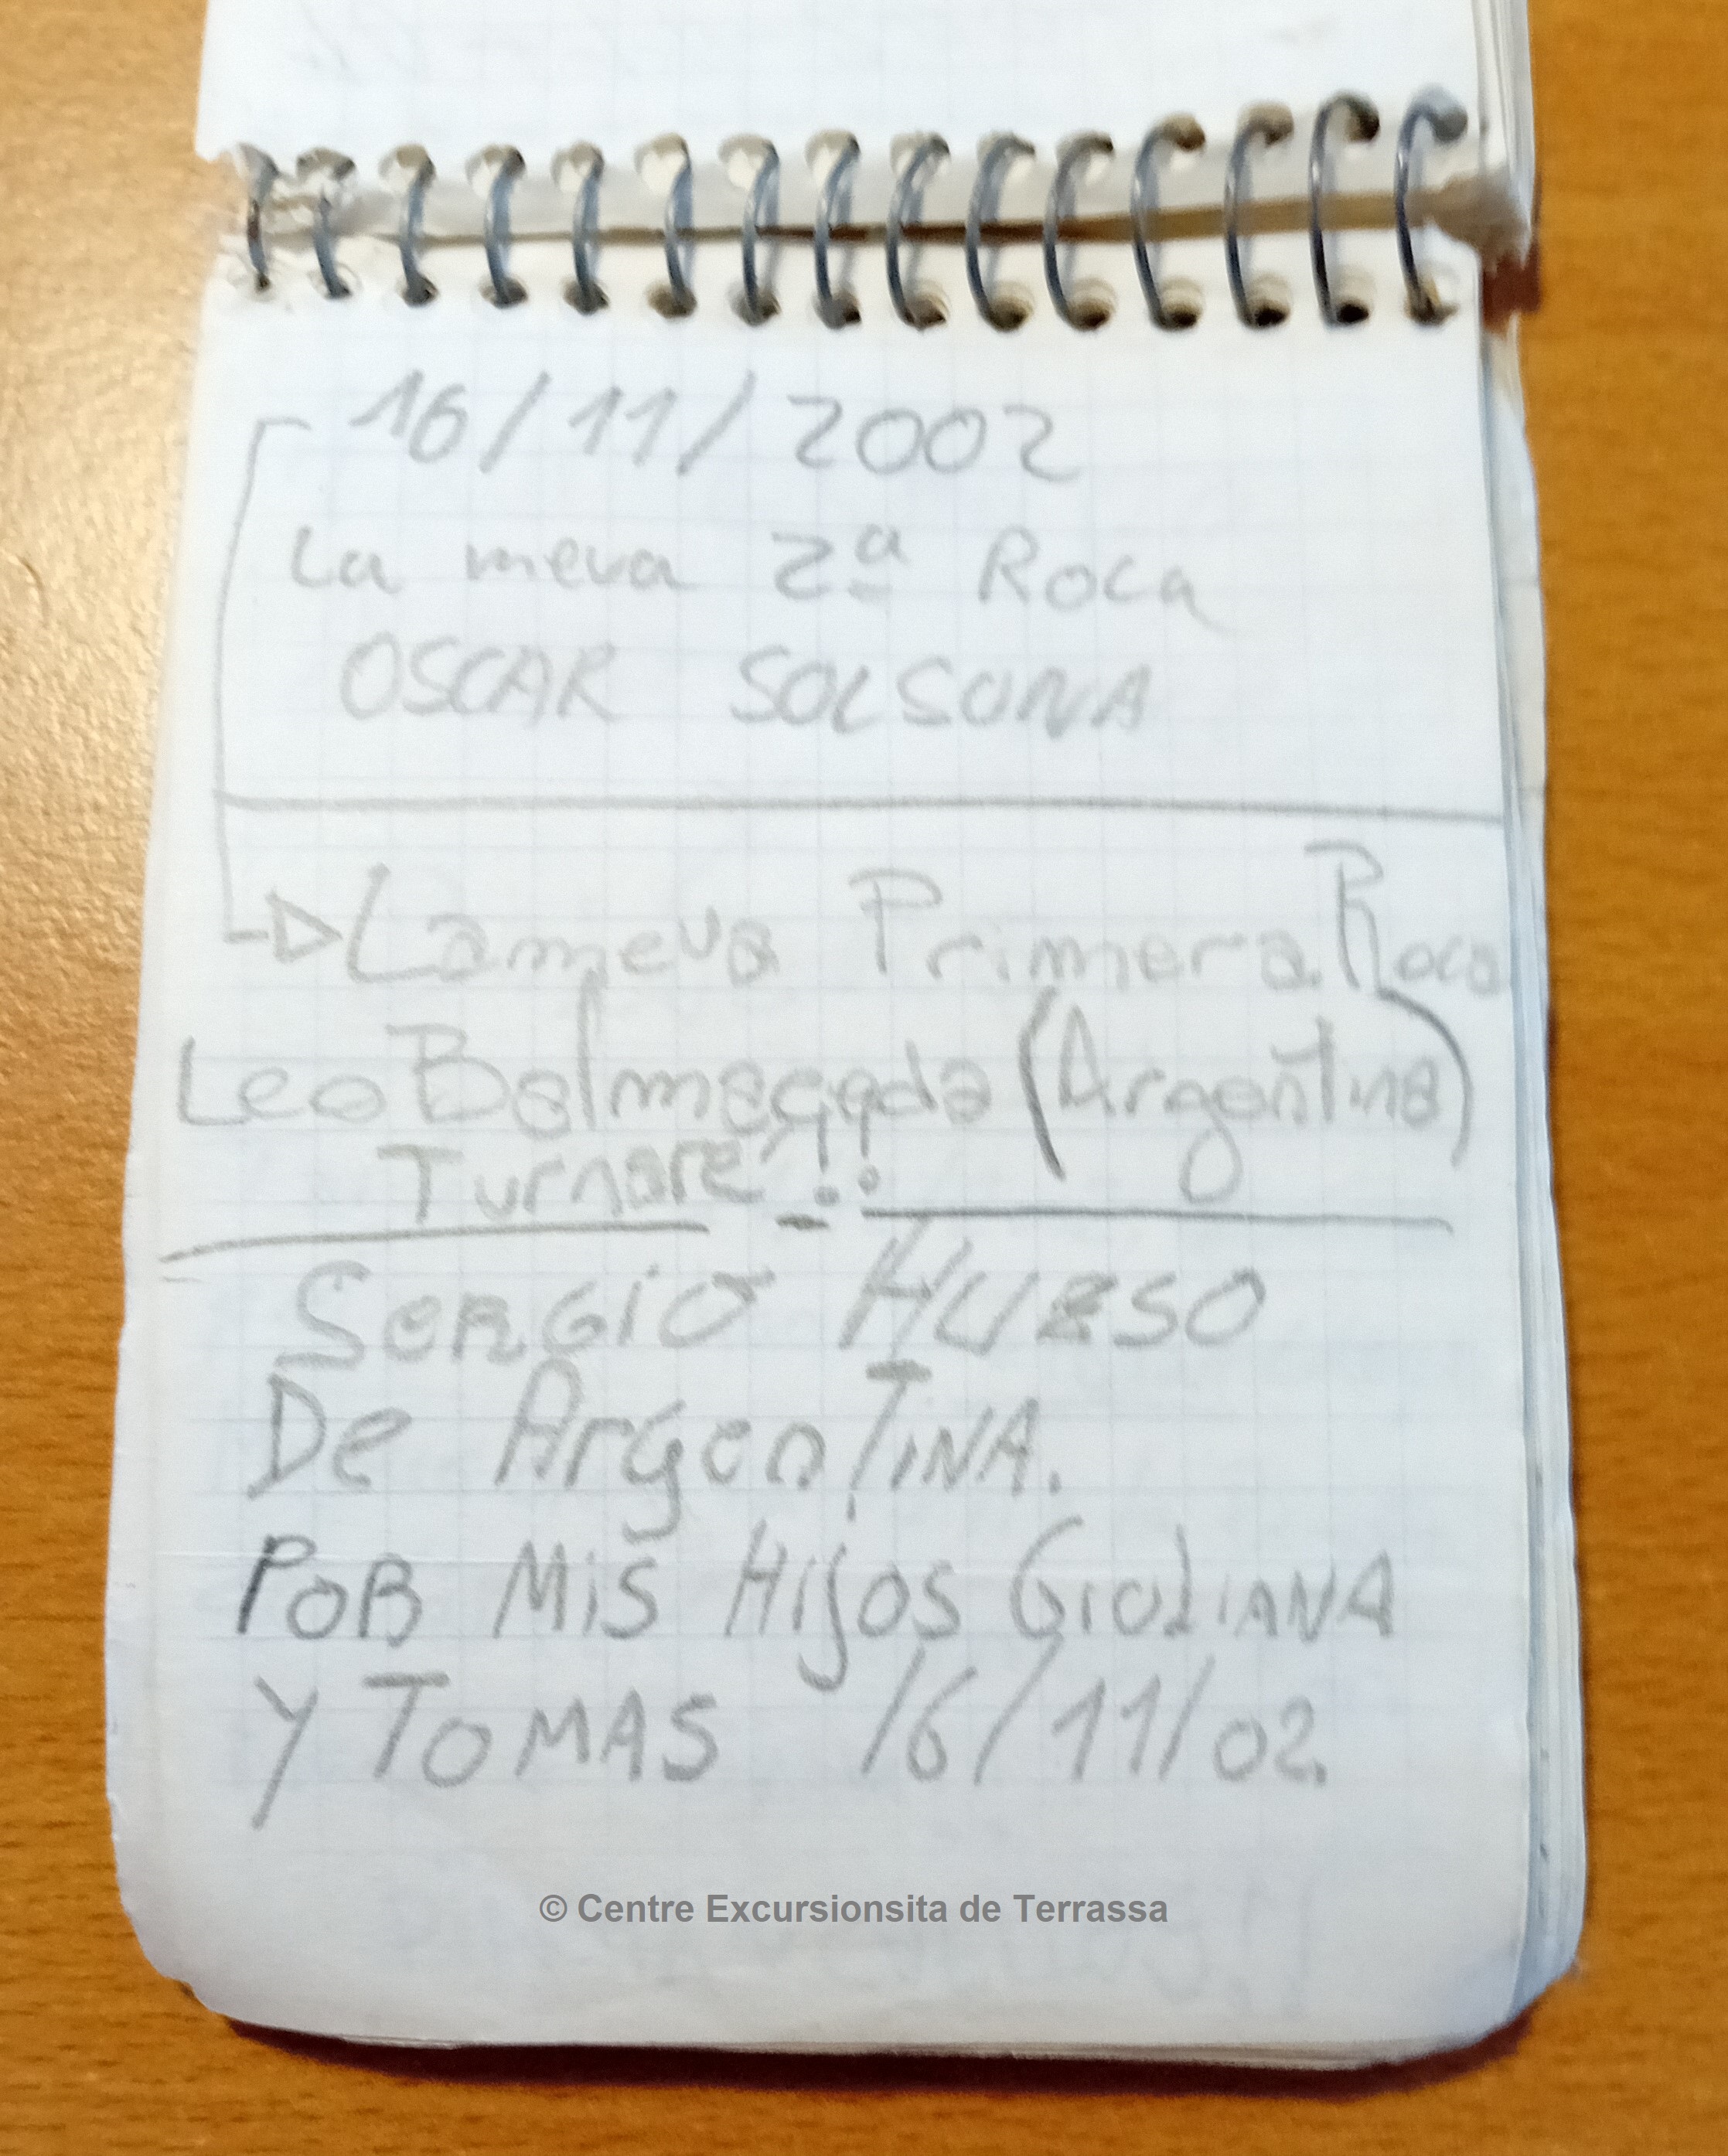 16/11/2002
La meva 2ª Roca
OSCAR SOLSONA
La meva Primera Roca
Leo (Argentina)
Turnare !!
SERGIO HUESO
De ArgenTiNA.
POR MiS HijOS GIULIANA
Y TOMAS 16/11/02.
© Centre Excursionsita de Terrassa